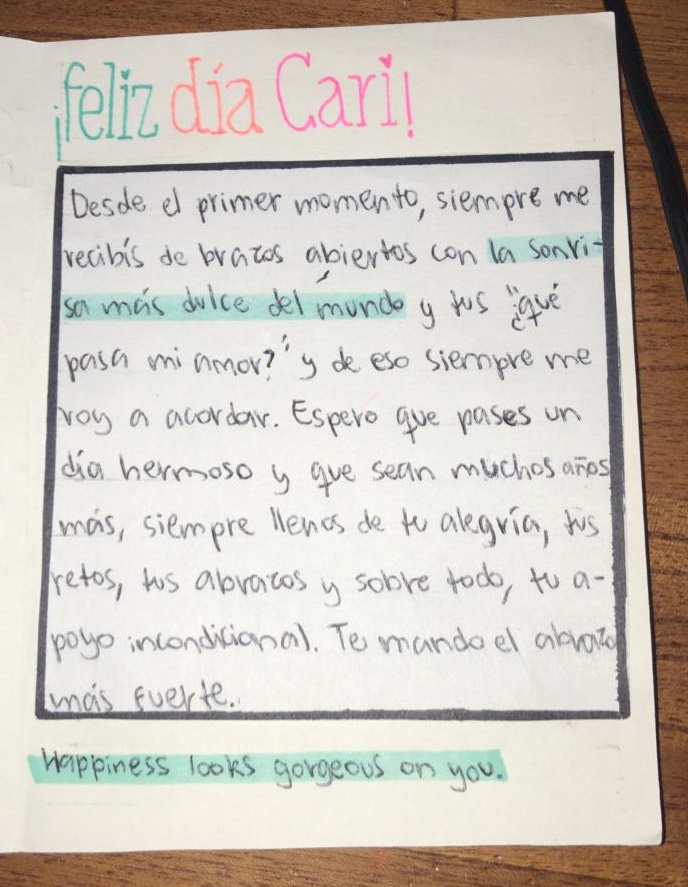 ¡feliz día Cari!
Desde el primer momento, siempre me
recibís de brazos abiertos con la sonri-
sa más dulce del mundo y tus "¿qué
pasa mi amor?" y de eso siempre me
voy a acordar. Espero que pases un
día hermoso y que sean muchos años
más, siempre llenos de tu alegría, tus
retos, tus abrazos y sobre todo, tu a-
poyo incondicional. Te mando el abrazo
más fuerte.
Happiness looks gorgeous on you.